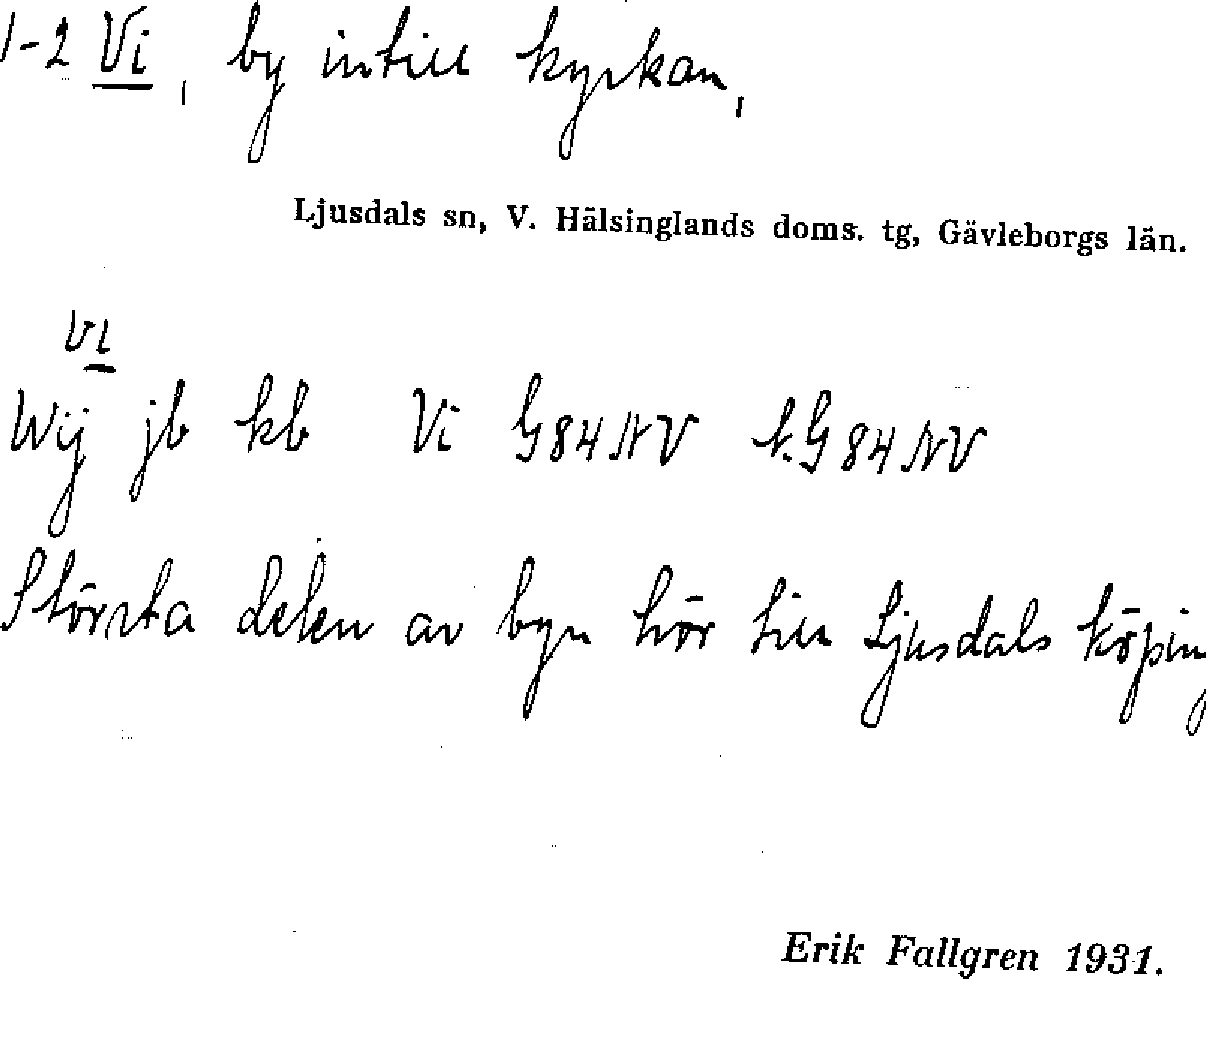 1-2 Vi, by intill kyrkan,
Ljusdals sn, V. Hälsinglands doms. tg, Gävleborgs län.
vi
Wij jb kb Vi G84NV k.G84NV
Största delen av byn hör till Ljusdals köping
Erik Fallgren 1931.